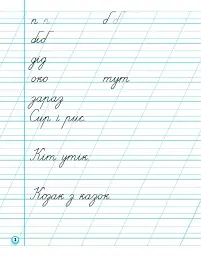 п п б б
біб
дід
око тут
зараз
Сир і рис.
Кіт утік.
Козак з казок.
1